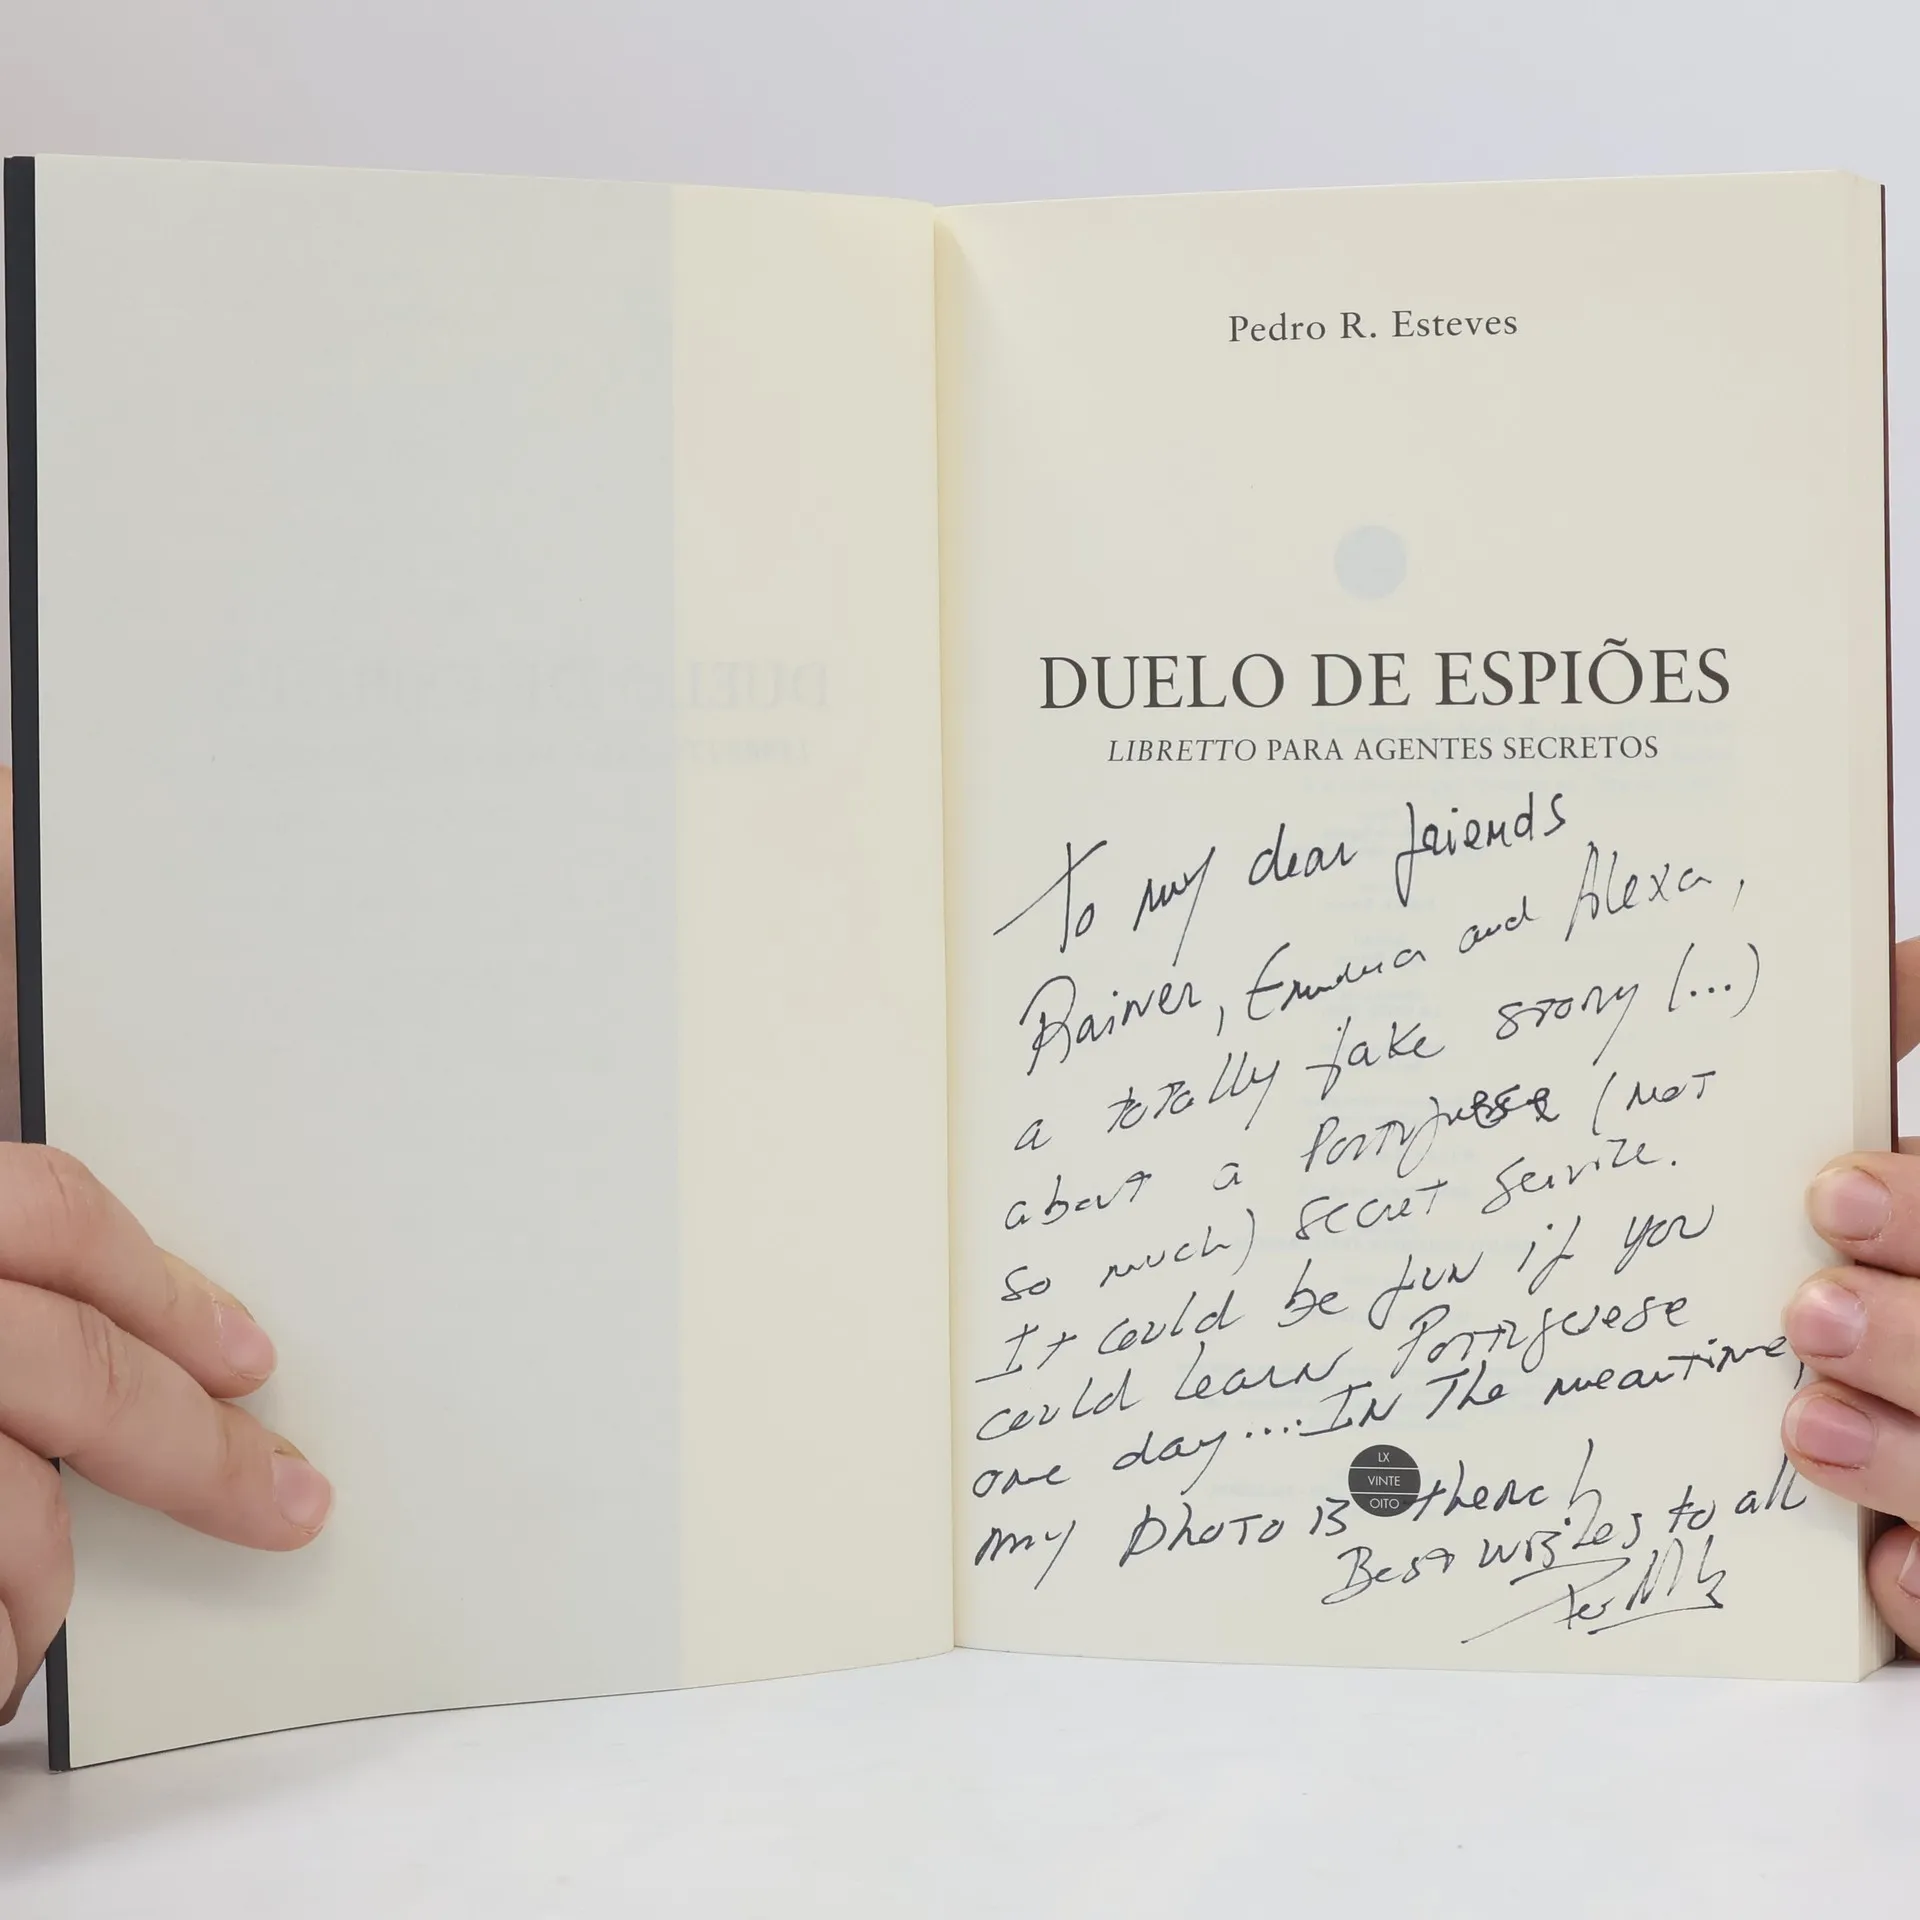 Pedro R. Esteves
DUELO DE ESPIÕES
LIBRETTO PARA AGENTES SECRETOS
To my dear friends
Rainer, Emma and Alexa,
a totally fake story (...)
about a Portuguese (not
so much) secret service.
It could be fun if you
could learn Portuguese
one day.... In the meantime,
my photo is there!
Best wishes to all
LX
VINTE
OITO